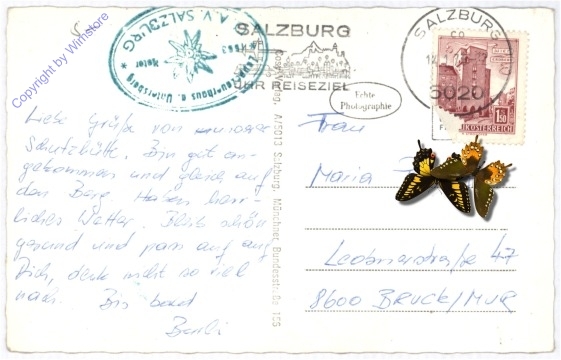 Copyright by Wimstore
A.V. SALZBURG
SALZBURG
IHR REISEZIEL
SALZBURG
5020
1.50
Echte
Photographie
Liebe Grüße von unserer
Schutzhütte. Bin gut an-
gekommen und gleich auf
den Berg. Haben herr-
liches Wetter. Bleib schön
gesund und pass auf auf
Dich, denk nicht so viel
nach. Bis bald
Cosy-Verlag, A/5013 Salzburg, Münchner Bundesstraße 155
Frau
Maria
Leobnerstraße 47
8600 BRUCK/MUR